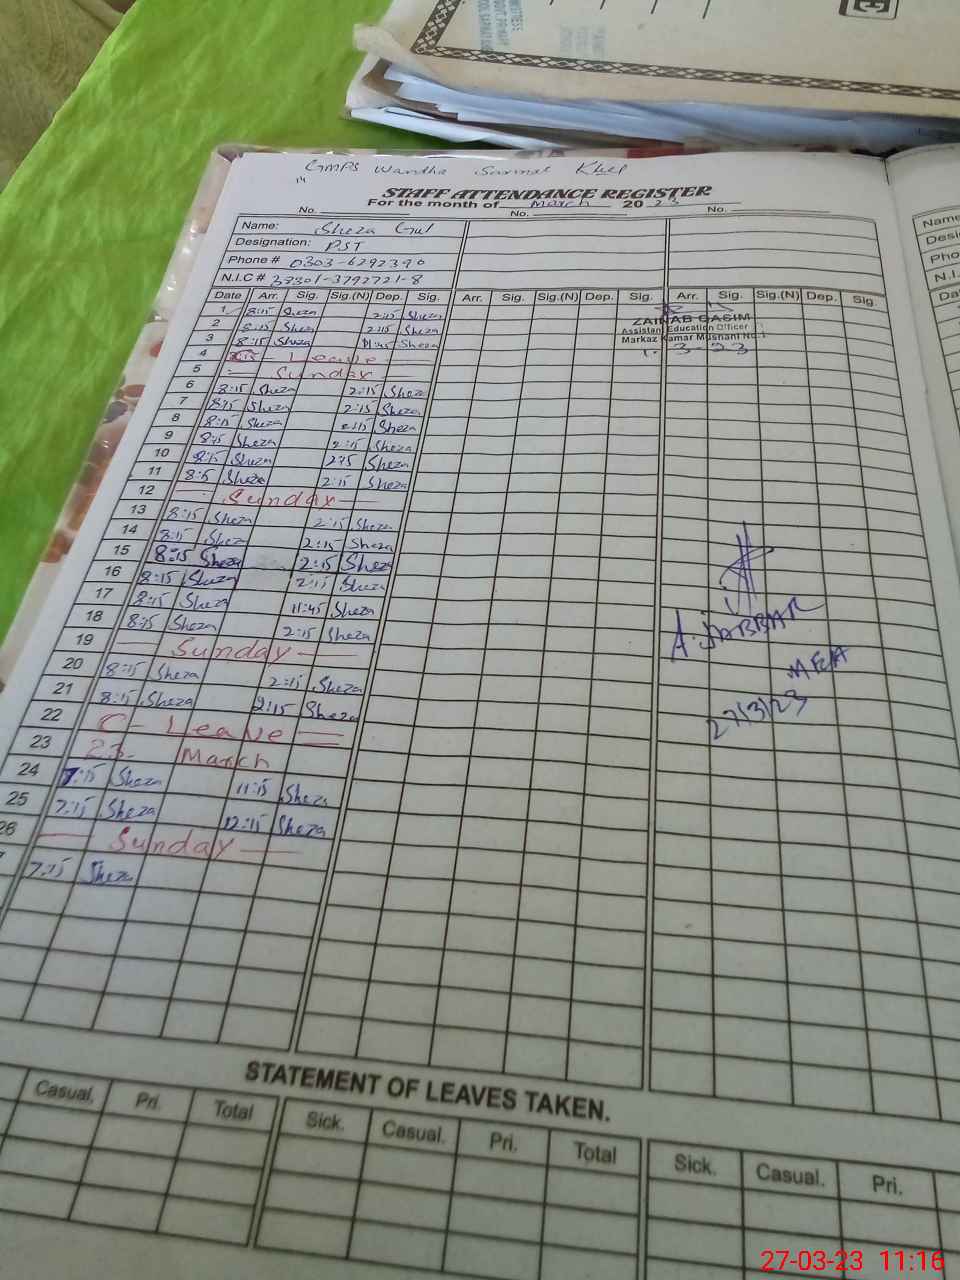 GMPS Wandha Sarmat Khel
STAFF ATTENDANCE REGISTER
For the month of March 2023
No. No. No.
Name: Sheza Gul
Designation: PST
Phone # 0303-6292390
N.I.C # 38301-3792721-8
Date Arr. Sig. Sig.(N) Dep. Sig. Arr. Sig. Sig.(N) Dep. Sig. Arr. Sig. Sig.(N) Dep. Sig.
ZAINAB QASIM
Assistant Education Officer
Markaz Kamar Mushani No.1
1. 3-23
1 8:15 Sheza 2:15 Sheza
2 8:15 Sheza 2:15 Sheza
3 8:15 Sheza 11:45 Sheza
4 Leave
5 Sunday
6 8:15 Sheza 2:15 Sheza
7 8:15 Sheza 2:15 Sheza
8 8:15 Sheza 2:15 Sheza
9 8:15 Sheza 2:15 Sheza
10 8:15 Sheza 2:15 Sheza
11 8:15 Sheza 2:15 Sheza
12 Sunday
13 8:15 Sheza 2:15 Sheza
14 8:15 Sheza 2:15 Sheza
15 8:15 Sheza 2:15 Sheza
16 8:15 Sheza 2:15 Sheza
17 8:15 Sheza 11:45 Sheza
18 8:15 Sheza 2:15 Sheza
19 Sunday
20 8:15 Sheza 2:15 Sheza
21 8:15 Sheza 2:15 Sheza
22 C- Leave
23 23- March
24 7:15 Sheza 11:15 Sheza
25 7:15 Sheza 12:15 Sheza
26 Sunday
7:15 Sheza
A. JABBAR
MEA
27/3/23
STATEMENT OF LEAVES TAKEN.
Casual. Pri. Total Sick. Casual. Pri. Total Sick. Casual. Pri.
Name
Desi
Pho
N.I.
Da
27-03-23 11:16